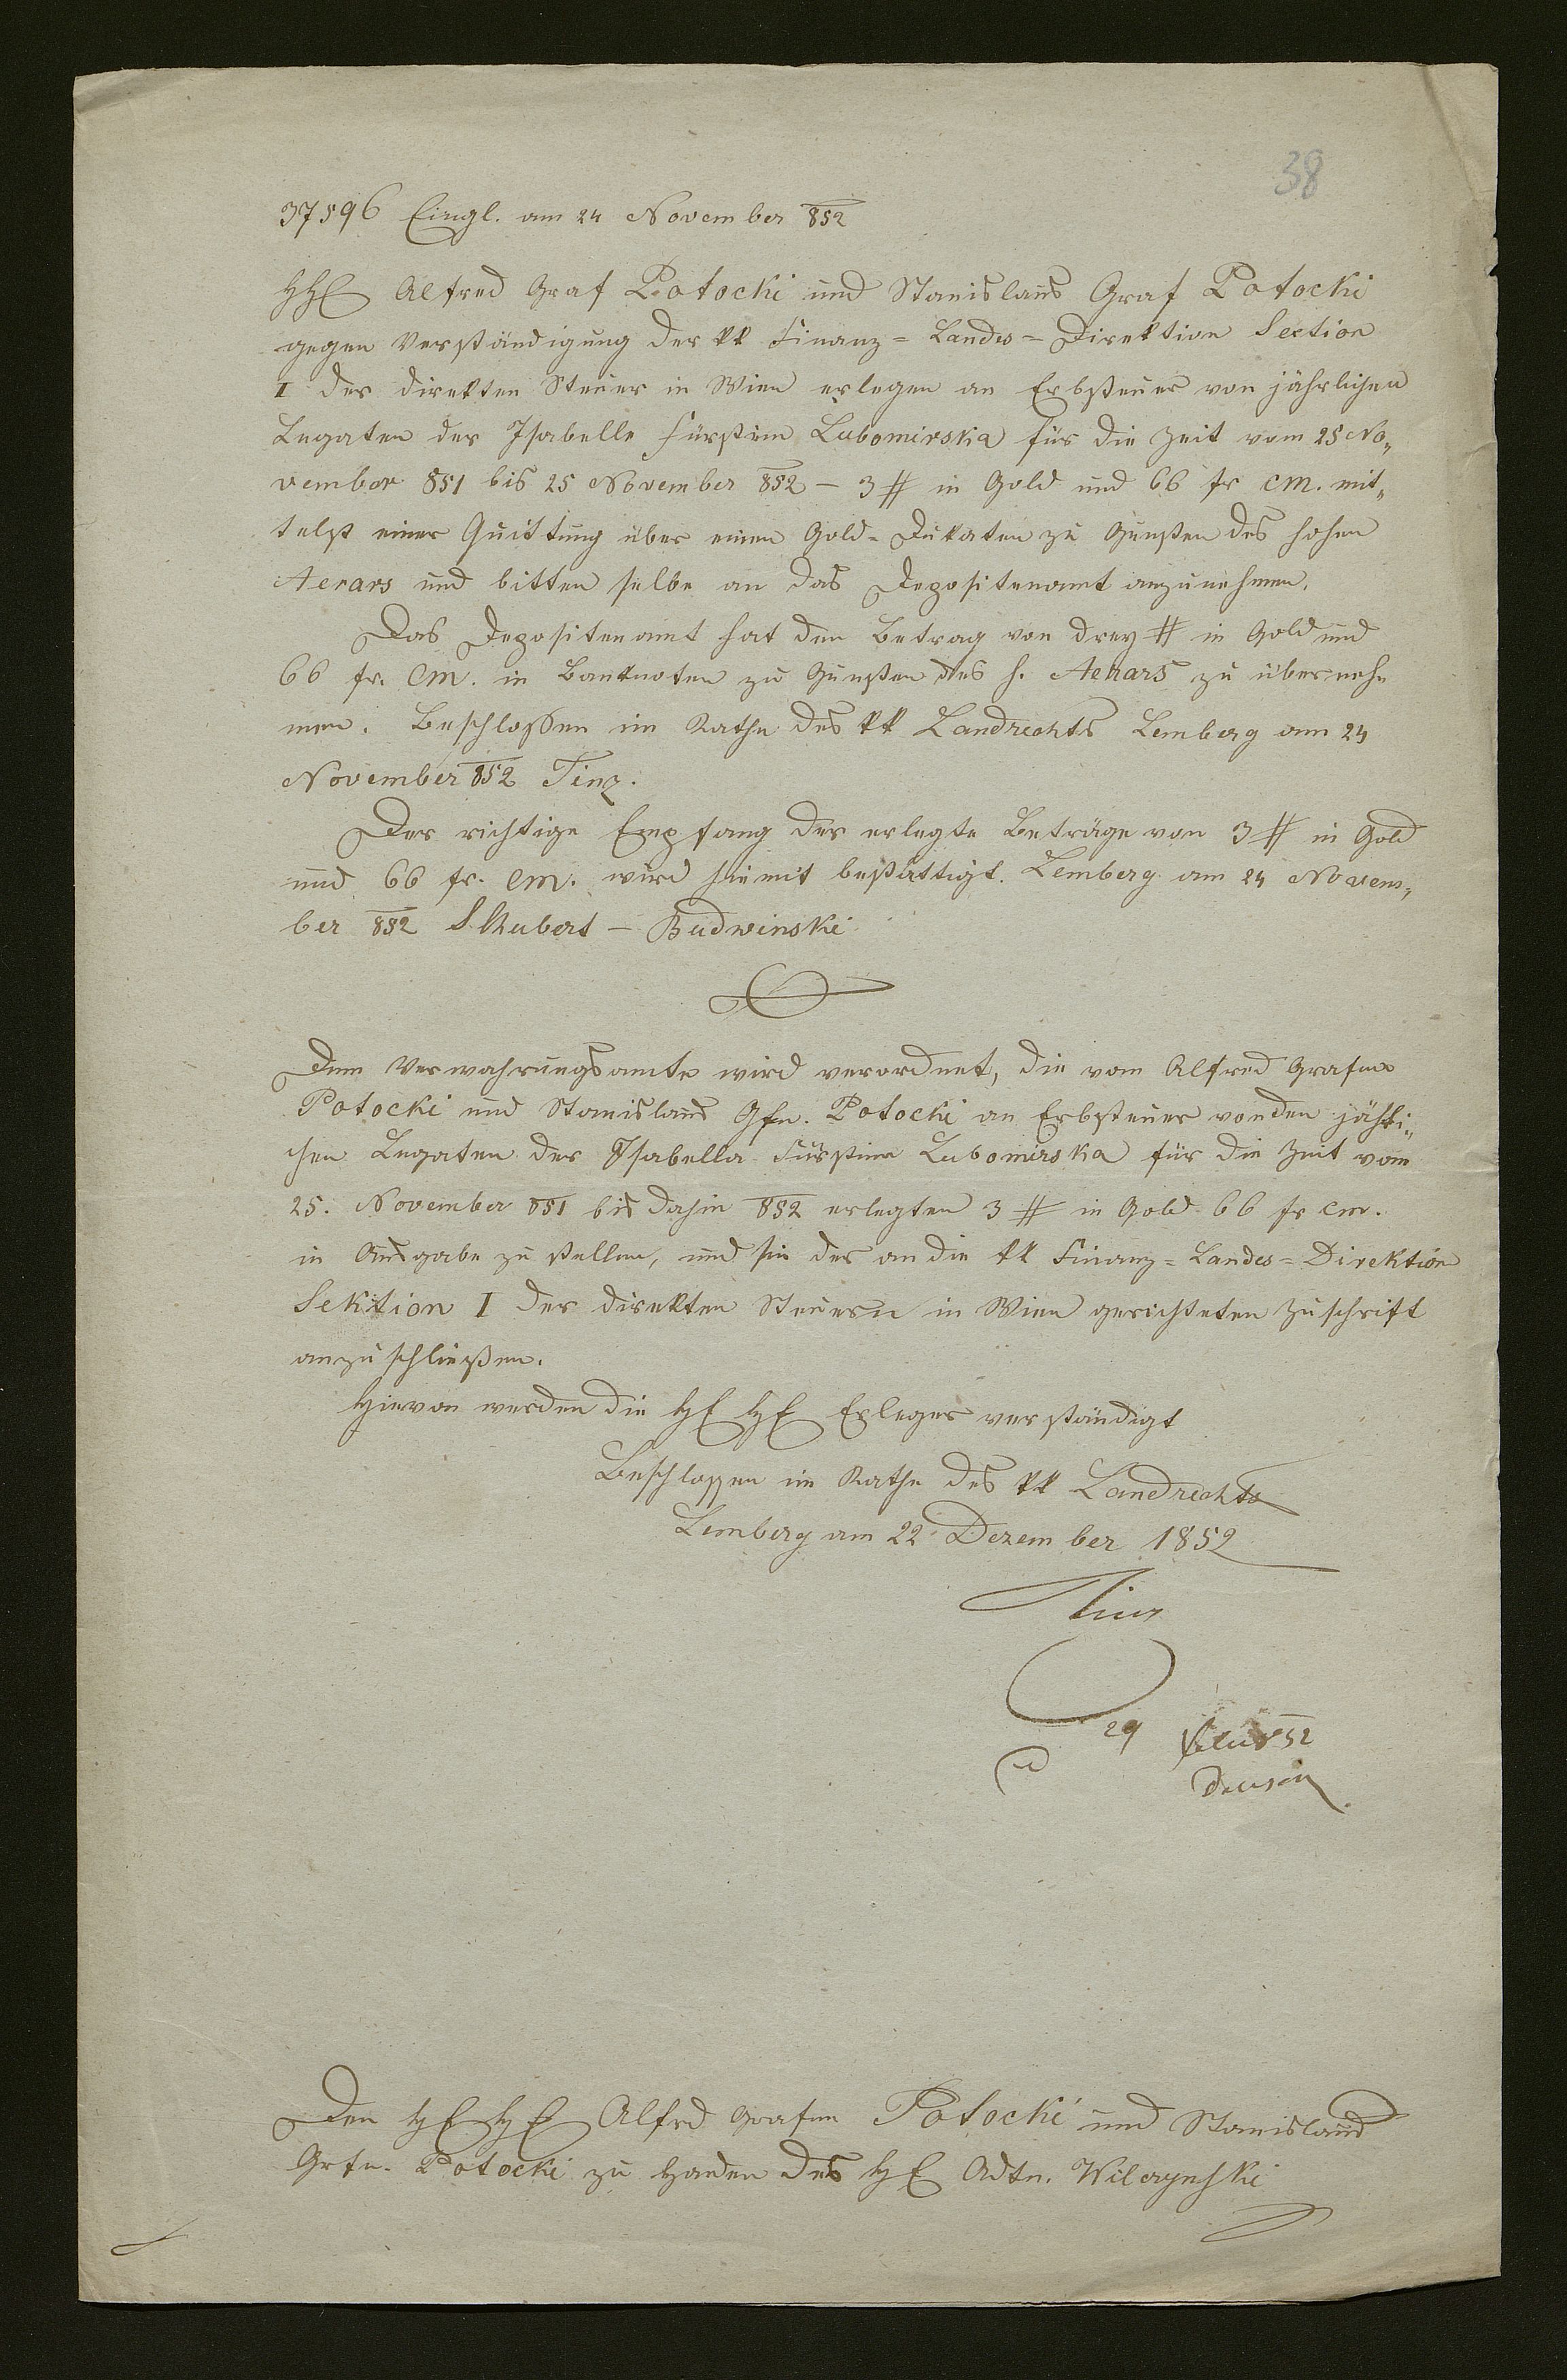 38
37596 Eingl. am 24 November 852
HH Alfred Graf Potocki und Stanislaus Graf Potocki
gegen Verständigung der kk Finanz=Landes=Direktion Section
I der direkten Steuer in Wien erlegen an Erbsteuer von jährlichen
Legaten der Isabelle Fürstinn Lubomirska für die Zeit vom 25 No„
vember 851 bis 25 November 852 – 3 # in Gold und 66 fr CM. mit„
telst einer Quittung über einen Gold=Dukaten zu Gunsten des hohen
Aerars und bitten selbe an das Depositenamt anzunehmen.
Das Depositenamt hat den Betrag von drey # in Gold und
66 fr. CM. in Banknoten zu Gunsten des h. Aerars zu überneh
men. Beschlossen im Rathe des kk Landrechts Lemberg am 24
November 852 Tinz.
Der richtige Empfang der erlegte Beträge von 3 # in Gold
und 66 fr. CM. wird hiemit bestättigt. Lemberg am 24 Novem„
ber 852 Skubert – Budwinski
Dem Verwahrungsamte wird verordnet, die vom Alfred Grafen
Potocki und Stanislaus Gfn. Potocki an Erbsteuer von den jährli„
chen Legaten der Isabella Fürstinn Lubomirska für die Zeit vom
25. November 851 bis dahin 852 erlegten 3 # in Gold 66 fr CM.
in Ausgabe zu stellen, und sie der an die kk Finanz=Landes=Direktion
Sektion I der direkten Steuern in Wien gerichteten Zuschrift
anzuschließen.
Hievon werden die HE HE Erleger verständigt
Beschlossen im Rathe des kk Landrechts
Lemberg am 22 Dezember 1852
Tinz
29 852
Den HE HE Alfrd Grafen Potocki und Stanislaus
Grfn. Potocki zu Handen des HE Adtn. Wilczynski